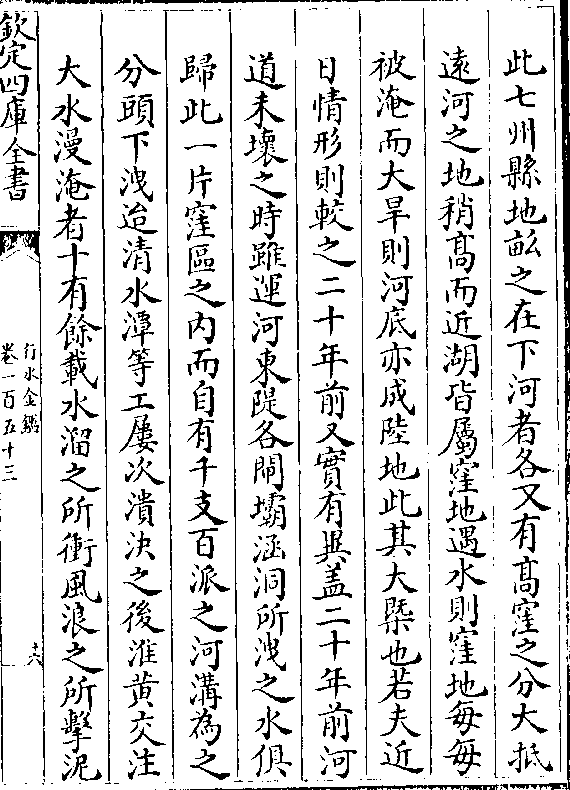 此七州縣地畝之在下河者各又有髙窪之分大抵
遠河之地稍髙而近湖皆屬窪地遇水則窪地每每
被淹而大旱則河底亦成陸地此其大槩也若夫近
日情形則較之二十年前又實有異盖二十年前河
道未壊之時雖運河東隄各閘壩涵洞所洩之水俱
歸此一片窪區之内而自有千支百派之河溝為之
分頭下洩迨清水潭等工屢次潰決之後淮黄交注
大水漫淹者十有餘載水溜之所衝風浪之所擊泥
欽定四庫全書
行水金鑑
卷一百五十三
十六